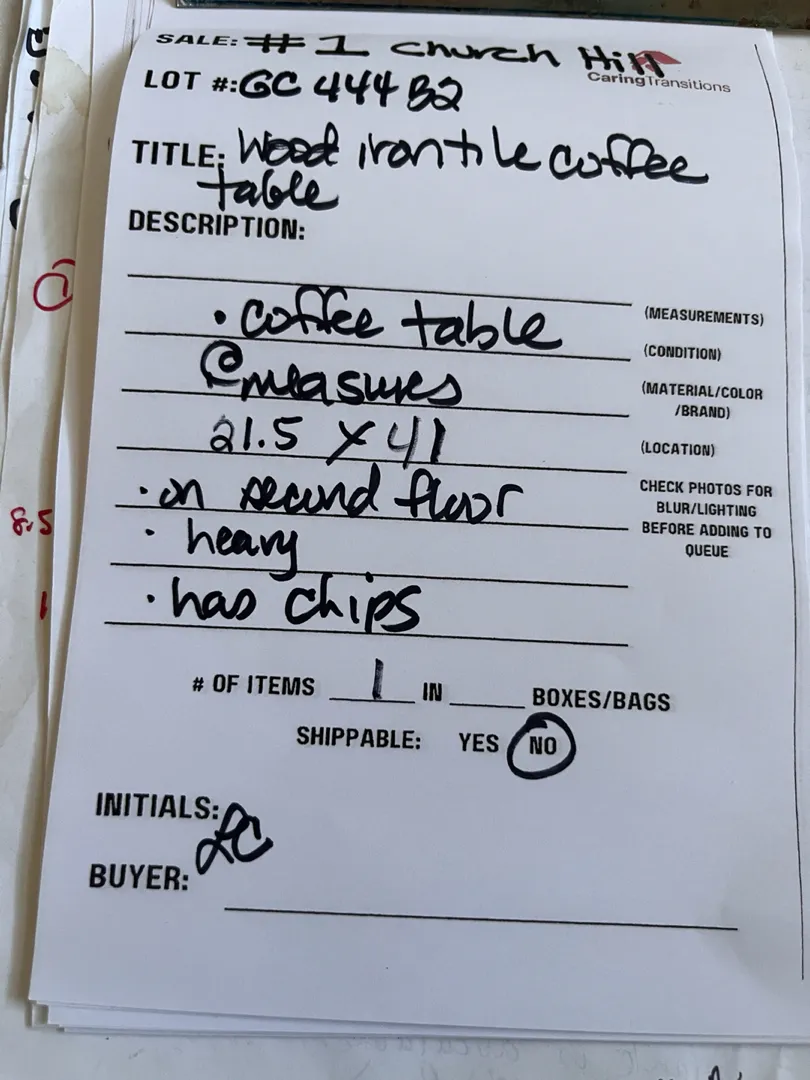 SALE: # 1 Church Hill
CaringTransitions
LOT #: GC 444 B2
TITLE: Wood iron tile coffee
table
DESCRIPTION:
• coffee table
(MEASUREMENTS)
(CONDITION)
@measures
(MATERIAL/COLOR
/BRAND)
21.5 X 41
(LOCATION)
• on second floor
CHECK PHOTOS FOR
BLUR/LIGHTING
BEFORE ADDING TO
QUEUE
• heavy
• has chips
# OF ITEMS 1 IN ____ BOXES/BAGS
SHIPPABLE: YES NO
INITIALS: LC
BUYER:
8.5
1